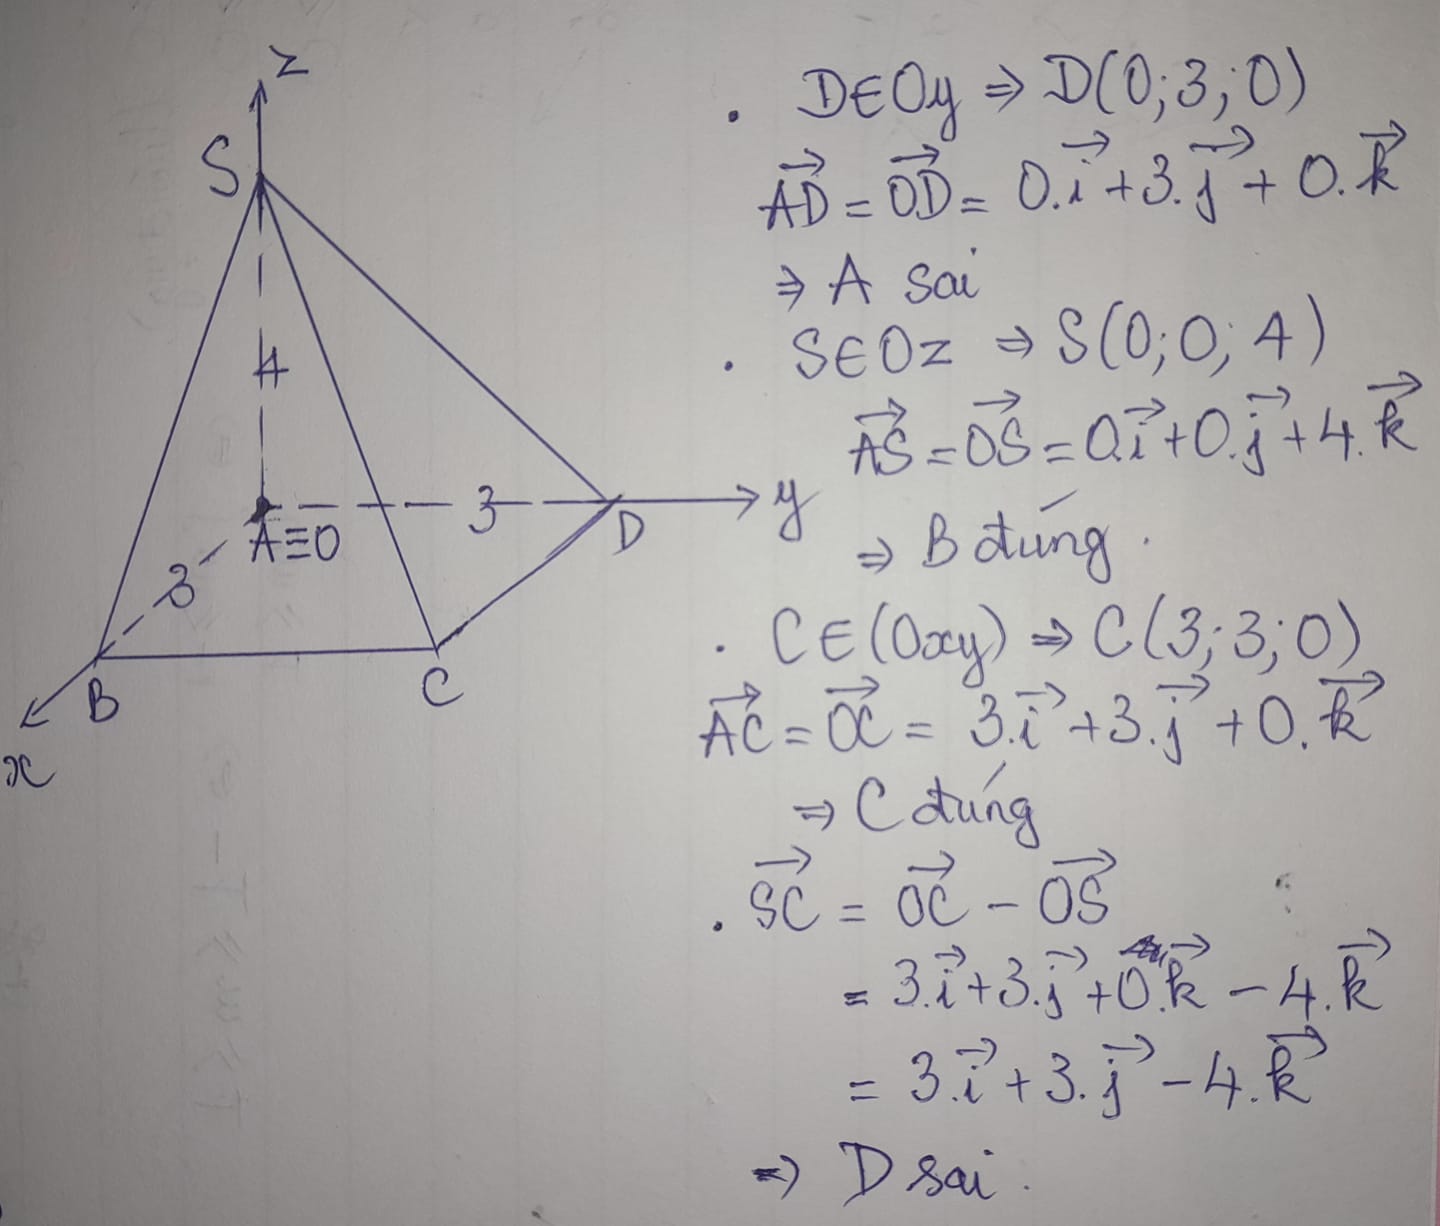 z
S
4
A≡O
3
D
y
3
B
C
x
. D∈Oy ⇒ D(0;3;0)
→AD = →OD = 0.→i + 3.→j + 0.→k
⇒ A sai
. S∈Oz ⇒ S(0;0;4)
→AS = →OS = 0.→i + 0.→j + 4.→k
⇒ B đúng.
. C∈(Oxy) ⇒ C(3;3;0)
→AC = →OC = 3.→i + 3.→j + 0.→k
⇒ C đúng
. →SC = →OC − →OS
= 3.→i + 3.→j + 0.→k − 4.→k
= 3.→i + 3.→j − 4.→k
⇒ D sai.